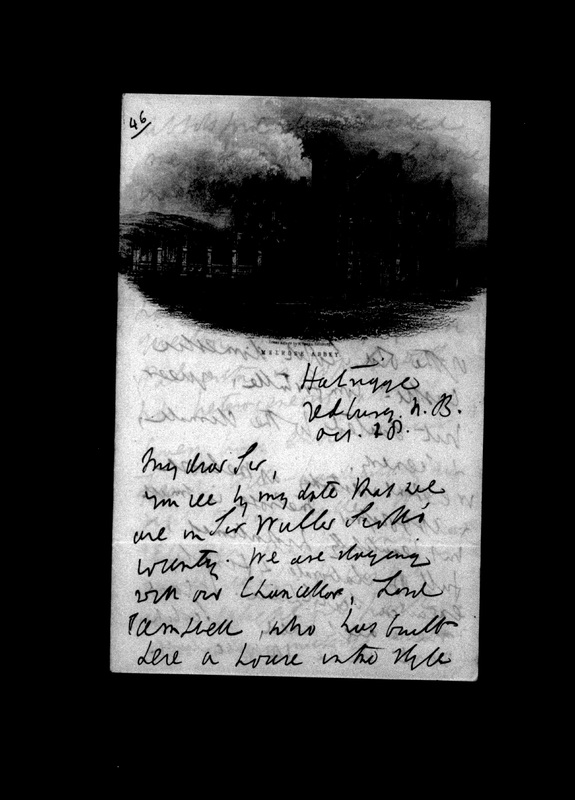 46
MELROSE ABBEY
Hartrigge
Jedburg. N.B.
Oct. 28.
My dear Sir,
You see by my date that we
are in Sir Walter Scott's
country. We are staying
with our Chancellor, Lord
Campbell, who has built
here a house in the style